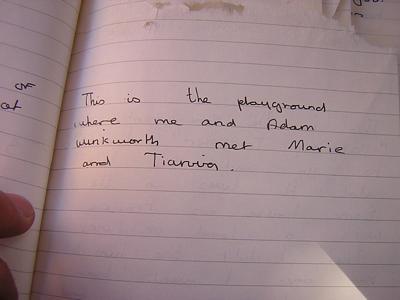 This is the playground
where me and Adam
winkworth met Marie
and
of